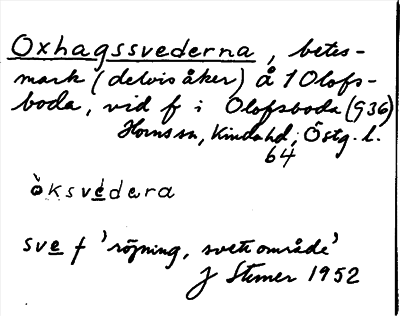 Oxhagssvederna, betes-
mark (delvis åker) å 1 Olofs-
boda, vid f i Olofsboda (936)
Horns sn, Kinda hd, Östg. l.
64
òksvédera
sve f 'röjning, svett område'
J Stemer 1952